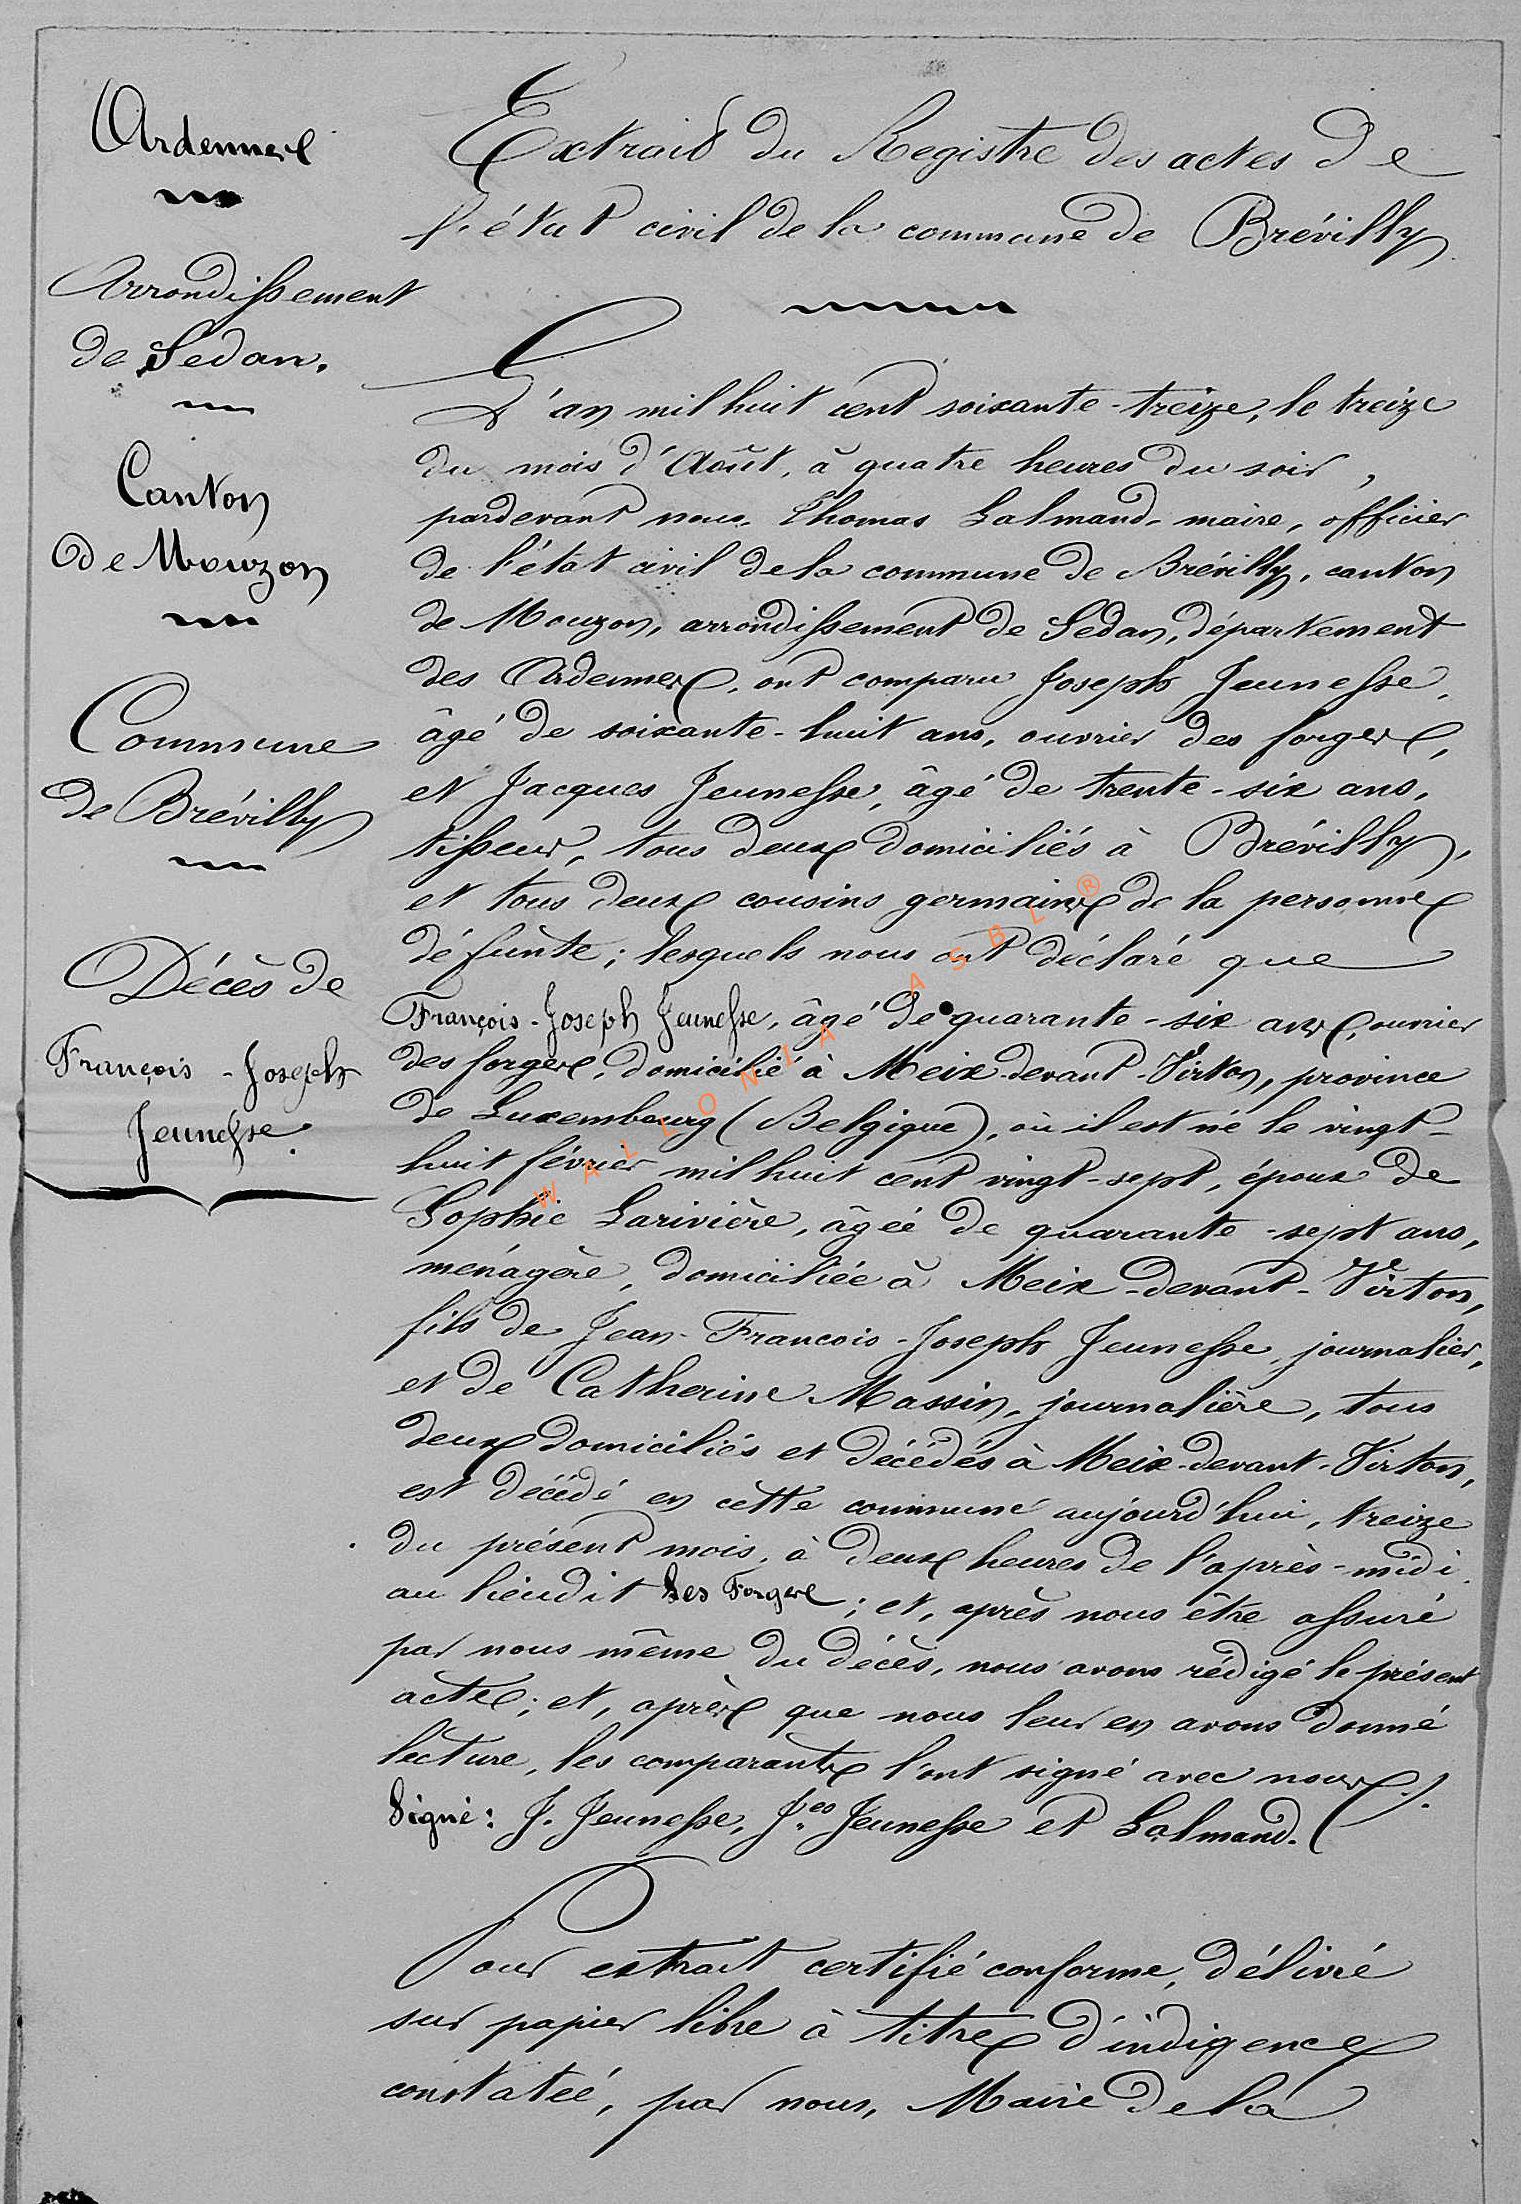 Ardennes
Arrondissement
de Sedan.
Canton
de Mouzon
Commune
de Brévilly
Décès de
François-Joseph
Jeunesse.
Extrait du Registre des actes de
l'état civil de la commune de Brévilly
L'an mil huit cent soixante-treize, le treize
du mois d'Août, à quatre heures du soir,
pardevant nous, Thomas Lalmand, maire, officier
de l'état civil de la commune de Brévilly, canton
de Mouzon, arrondissement de Sedan, département
des Ardennes, ont comparu Joseph Jeunesse,
âgé de soixante-huit ans, ouvrier des forges,
et Jacques Jeunesse, âgé de trente-six ans,
tisseur, tous deux domiciliés à Brévilly,
et tous deux cousins germains de la personne
défunte; lesquels nous ont déclaré que
François-Joseph Jeunesse, âgé de quarante-six ans, ouvrier
des forges, domicilié à Meix-devant-Virton, province
de Luxembourg (Belgique), où il est né le vingt-
huit février mil huit cent vingt-sept, époux de
Sophie Larivière, âgée de quarante-sept ans,
ménagère, domiciliée à Meix-devant-Virton,
fils de Jean-François-Joseph Jeunesse, journalier,
et de Catherine Massin, journalière, tous
deux domiciliés et décédés à Meix-devant-Virton,
est décédé en cette commune aujourd'hui, treize
du présent mois, à deux heures de l'après-midi
au lieudit Les Forges; et, après nous être assuré
par nous même du décès, nous avons rédigé le présent
acte; et, après que nous leur en avons donné
lecture, les comparants l'ont signé avec nous).
Signé: J. Jeunesse, J.es Jeunesse et Lalmand.
Pour extrait certifié conforme, délivré
sur papier libre à titre d'indigence
constatée, par nous, Maire de la
WALLONIA ASBL ®